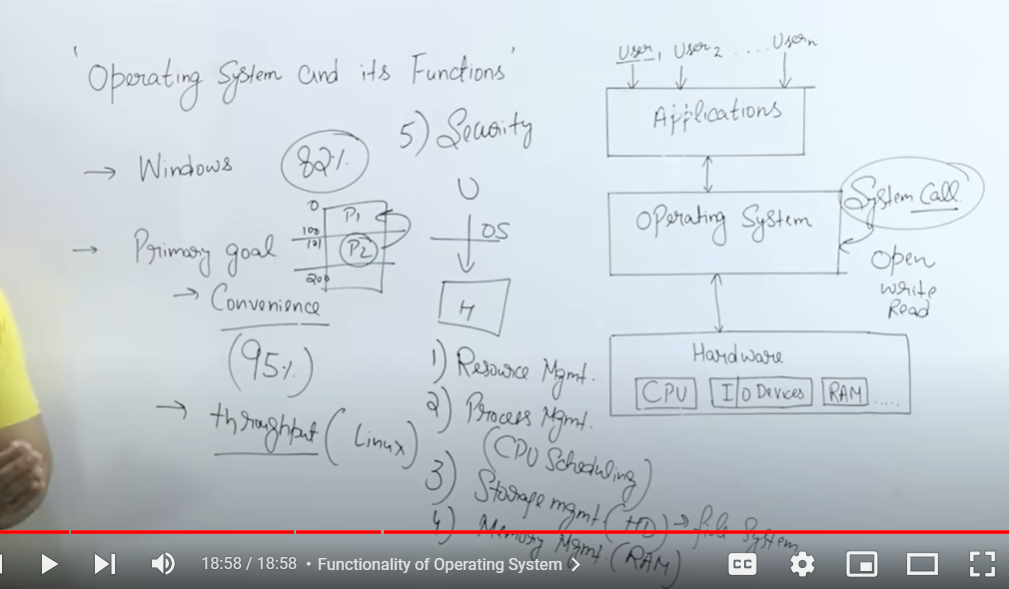 'Operating System and its Functions'
→ Windows
82%
→ Primary goal
→ Convenience
(95%)
→ throughput (Linux)
0
P1
100
101
P2
200
5) Security
U
OS
H
1) Resource Mgmt.
2) Process Mgmt.
(CPU Scheduling)
3) Storage mgmt (HD) → file System
4) Memory Mgmt. (RAM)
User1 User2 .... Usern
Applications
Operating System
System Call
Open
Write
Read
Hardware
CPU I/O Devices RAM .....
18:58 / 18:58 • Functionality of Operating System >
CC